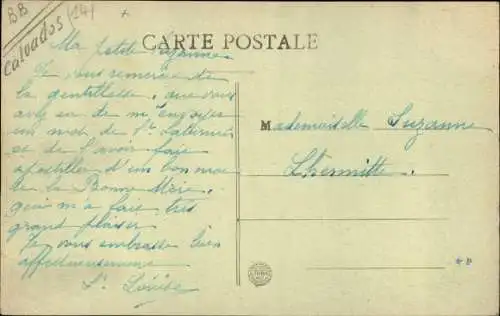 BB
Calvados (14)
CARTE POSTALE
Ma petite Suzanne
Je vous remercie de
la gentillesse, que vous
avez eu de m'envoyer
un mot de St
se de l'avoir fait
apostiller d'un bon mot
de la Bonne Mère,
qui m'a fait très
grand plaisir
Je vous embrasse bien
affectueusement
Sr Louise
Mademoiselle Suzanne
Lhermitte.